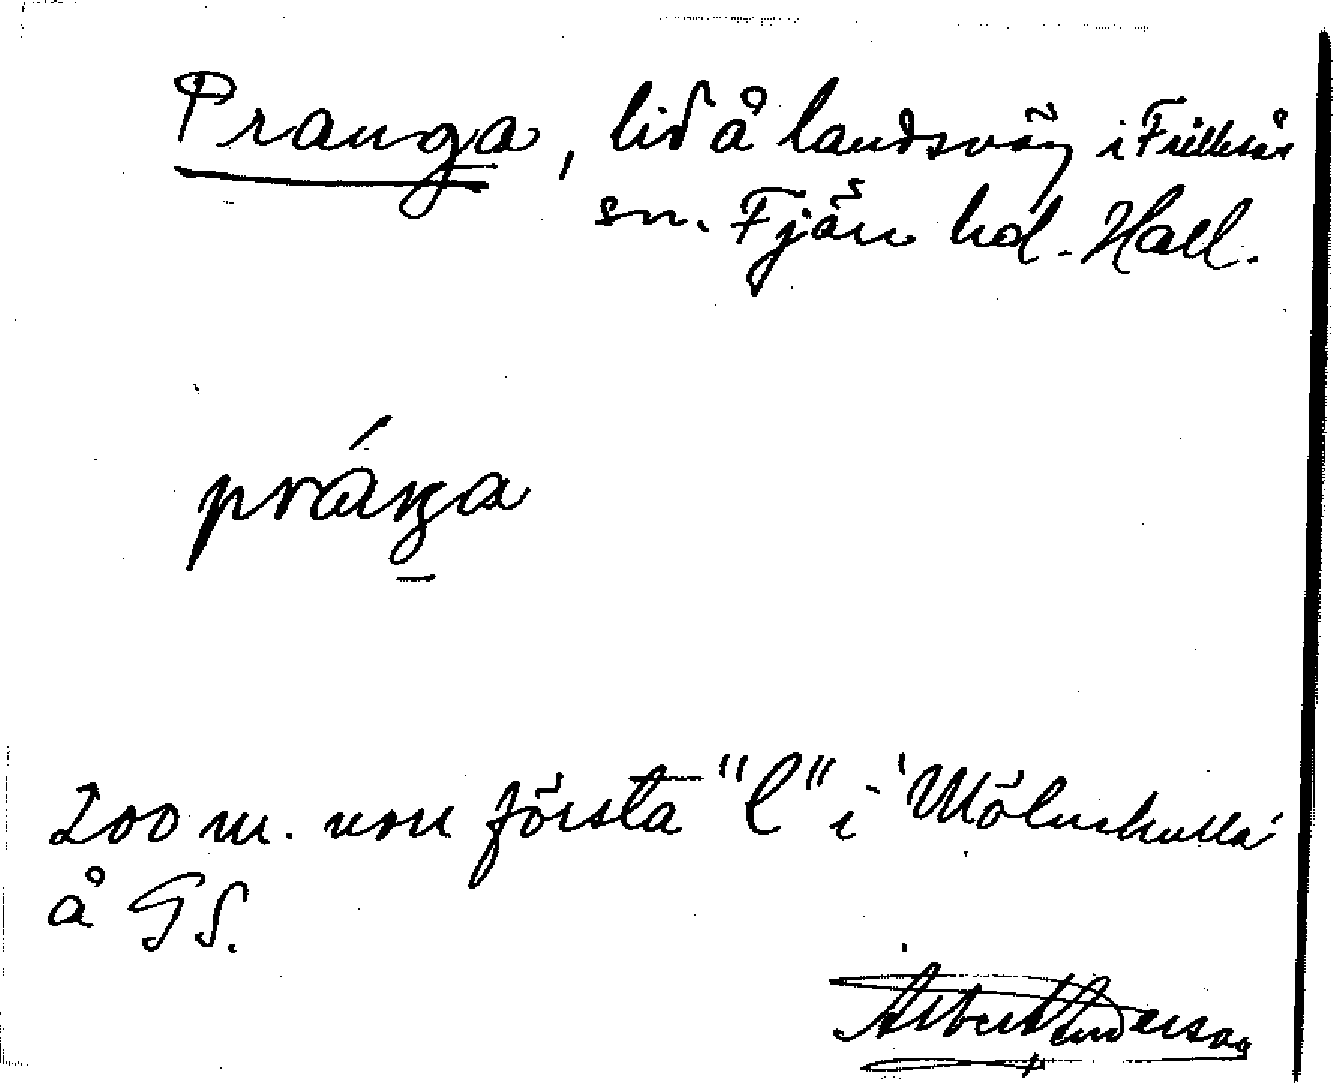 Pranga, lid å landsväg i Frillesås
sn. Fjäre hd. Hall.
práŋa
200 m. non första "l" i 'Mölnekulla'
å GS.
Albert Anderson